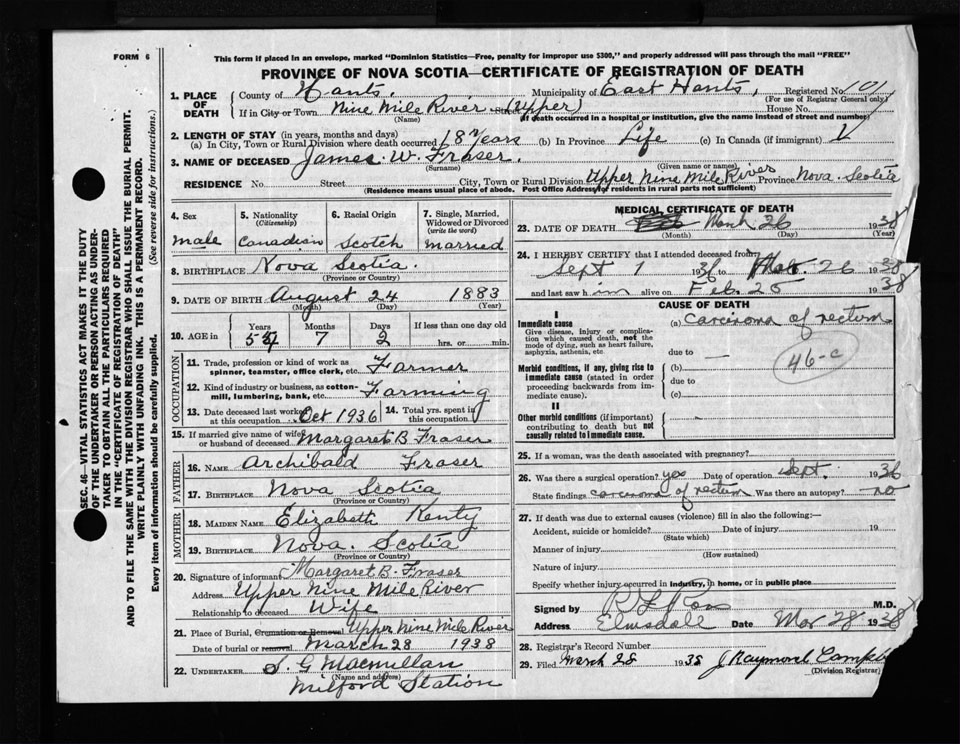 FORM 6
This form if placed in an envelope, marked "Dominion Statistics—Free, penalty for improper use $300," and properly addressed will pass through the mail "FREE"
PROVINCE OF NOVA SCOTIA—CERTIFICATE OF REGISTRATION OF DEATH
1. PLACE OF DEATH
County of Hants. Municipality of East Hants, Registered No. 101
(For use of Registrar General only)
If in City or Town Nine Mile River (Upper) Street House No.
(Name) (If death occurred in a hospital or institution, give the name instead of street and number)
2. LENGTH OF STAY (in years, months and days)
(a) In City, Town or Rural Division where death occurred 18 Years (b) In Province Life (c) In Canada (if immigrant)
3. NAME OF DECEASED James. W. Fraser.
(Surname) (Given name or names)
RESIDENCE No. Street City, Town or Rural Division Upper Nine Mile River Province Nova. Scotia
(Residence means usual place of abode. Post Office Address for residents in rural parts not sufficient)
4. Sex
male
5. Nationality
(Citizenship)
Canadian
6. Racial Origin
Scotch
7. Single, Married, Widowed or Divorced
(write the word)
married
8. BIRTHPLACE Nova Scotia.
(Province or Country)
9. DATE OF BIRTH August 24 1883
(Month) (Day) (Year)
10. AGE in Years Months Days If less than one day old
7 2 hrs. or min.
OCCUPATION
11. Trade, profession or kind of work as spinner, teamster, office clerk, etc. Farmer
12. Kind of industry or business, as cotton-mill, lumbering, bank, etc. Farming
13. Date deceased last worked at this occupation Oct 1936 14. Total yrs. spent in this occupation
15. If married give name of wife or husband of deceased Margaret B Fraser
FATHER
16. NAME Archibald Fraser
17. BIRTHPLACE Nova Scotia
(Province or Country)
MOTHER
18. MAIDEN NAME Elizabeth Kenty
19. BIRTHPLACE Nova. Scotia
(Province or Country)
20. Signature of informant Margaret B. Fraser
Address Upper Nine Mile River
Relationship to deceased Wife
21. Place of Burial, Cremation or Removal Upper Nine Mile River
Date of burial or removal March 28 1938
22. UNDERTAKER S. G Macmillan
(Name and address)
Milford Station
MEDICAL CERTIFICATE OF DEATH
23. DATE OF DEATH March 26 1938
(Month) (Day) (Year)
24. I HEREBY CERTIFY that I attended deceased from
Sept 1 1936 to Mar. 26 1938
and last saw him alive on Feb. 25 1938
CAUSE OF DEATH
I
Immediate cause
Give disease, injury or complication which caused death, not the mode of dying, such as heart failure, asphyxia, asthenia, etc
(a) carcinoma of rectum
due to —
46-c
Morbid conditions, if any, giving rise to immediate cause (stated in order proceeding backwards from immediate cause).
(b)
due to
(c)
II
Other morbid conditions (if important) contributing to death but not causally related to immediate cause.
25. If a woman, was the death associated with pregnancy?
26. Was there a surgical operation? yes Date of operation Sept. 1936
State findings carcinoma of rectum Was there an autopsy? no
27. If death was due to external causes (violence) fill in also the following:—
Accident, suicide or homicide? Date of injury 19
(State which)
Manner of injury
(How sustained)
Nature of injury
Specify whether injury occurred in industry, in home, or in public place
Signed by R L Ross M.D.
Address Elmsdale Date Mar 28 1938
28. Registrar's Record Number
29. Filed March 28 1938 J Raymond Campbell
(Division Registrar)
SEC. 46—VITAL STATISTICS ACT MAKES IT THE DUTY
OF THE UNDERTAKER OR PERSON ACTING AS UNDER-
TAKER TO OBTAIN ALL THE PARTICULARS REQUIRED
IN THE "CERTIFICATE OF REGISTRATION OF DEATH"
AND TO FILE THE SAME WITH THE DIVISION REGISTRAR WHO SHALL ISSUE THE BURIAL PERMIT.
WRITE PLAINLY WITH UNFADING INK. THIS IS A PERMANENT RECORD.
Every item of information should be carefully supplied. (See reverse side for instructions.)